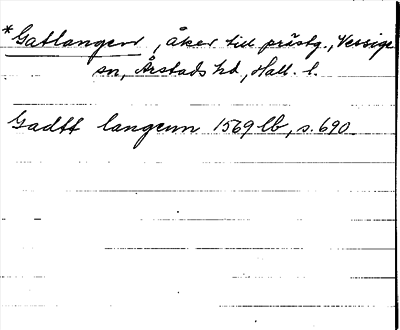 *Gatlangen, åker till prästg., Vessige
sn, Årstads hd, Hall. l.
Gadtt langenn 1569 lb, s. 690